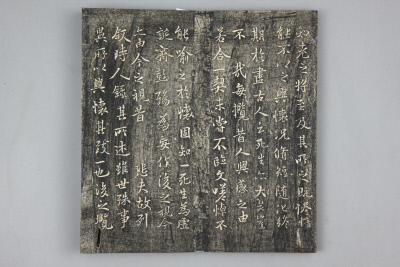 知老之将至及其所之既惓情
能不以之興懷況脩短隨化終
期於盡古人云死生亦大矣豈
不痛哉每攬昔人興感之由
若合一契未嘗不臨文嗟悼不
能喻之於懷固知一死生為虛
誕齊彭殤為妄作後之視今
亦由今之視昔 悲夫故列
叙時人錄其所述雖世殊事
異所以興懷其致一也後之攬